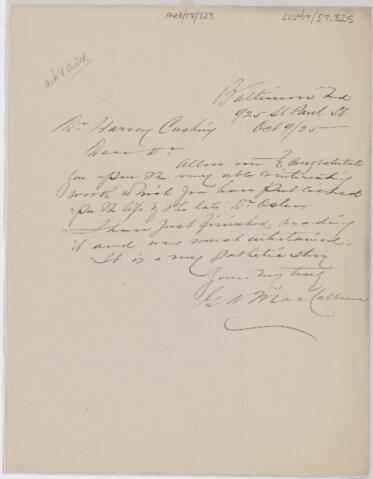 CUS417/57.325
ack'd
Baltimore Md
925 St Paul St
Oct 9/25
Dr Harvey Cushing
Dear Dr
Allow me to Congratulate
you upon the very able & interesting
work which you have published
upon the life of the late Dr Osler
I have just finished reading
it and was much entertained.
It is a very pathetic story
Yours very truly
G A MacCallum